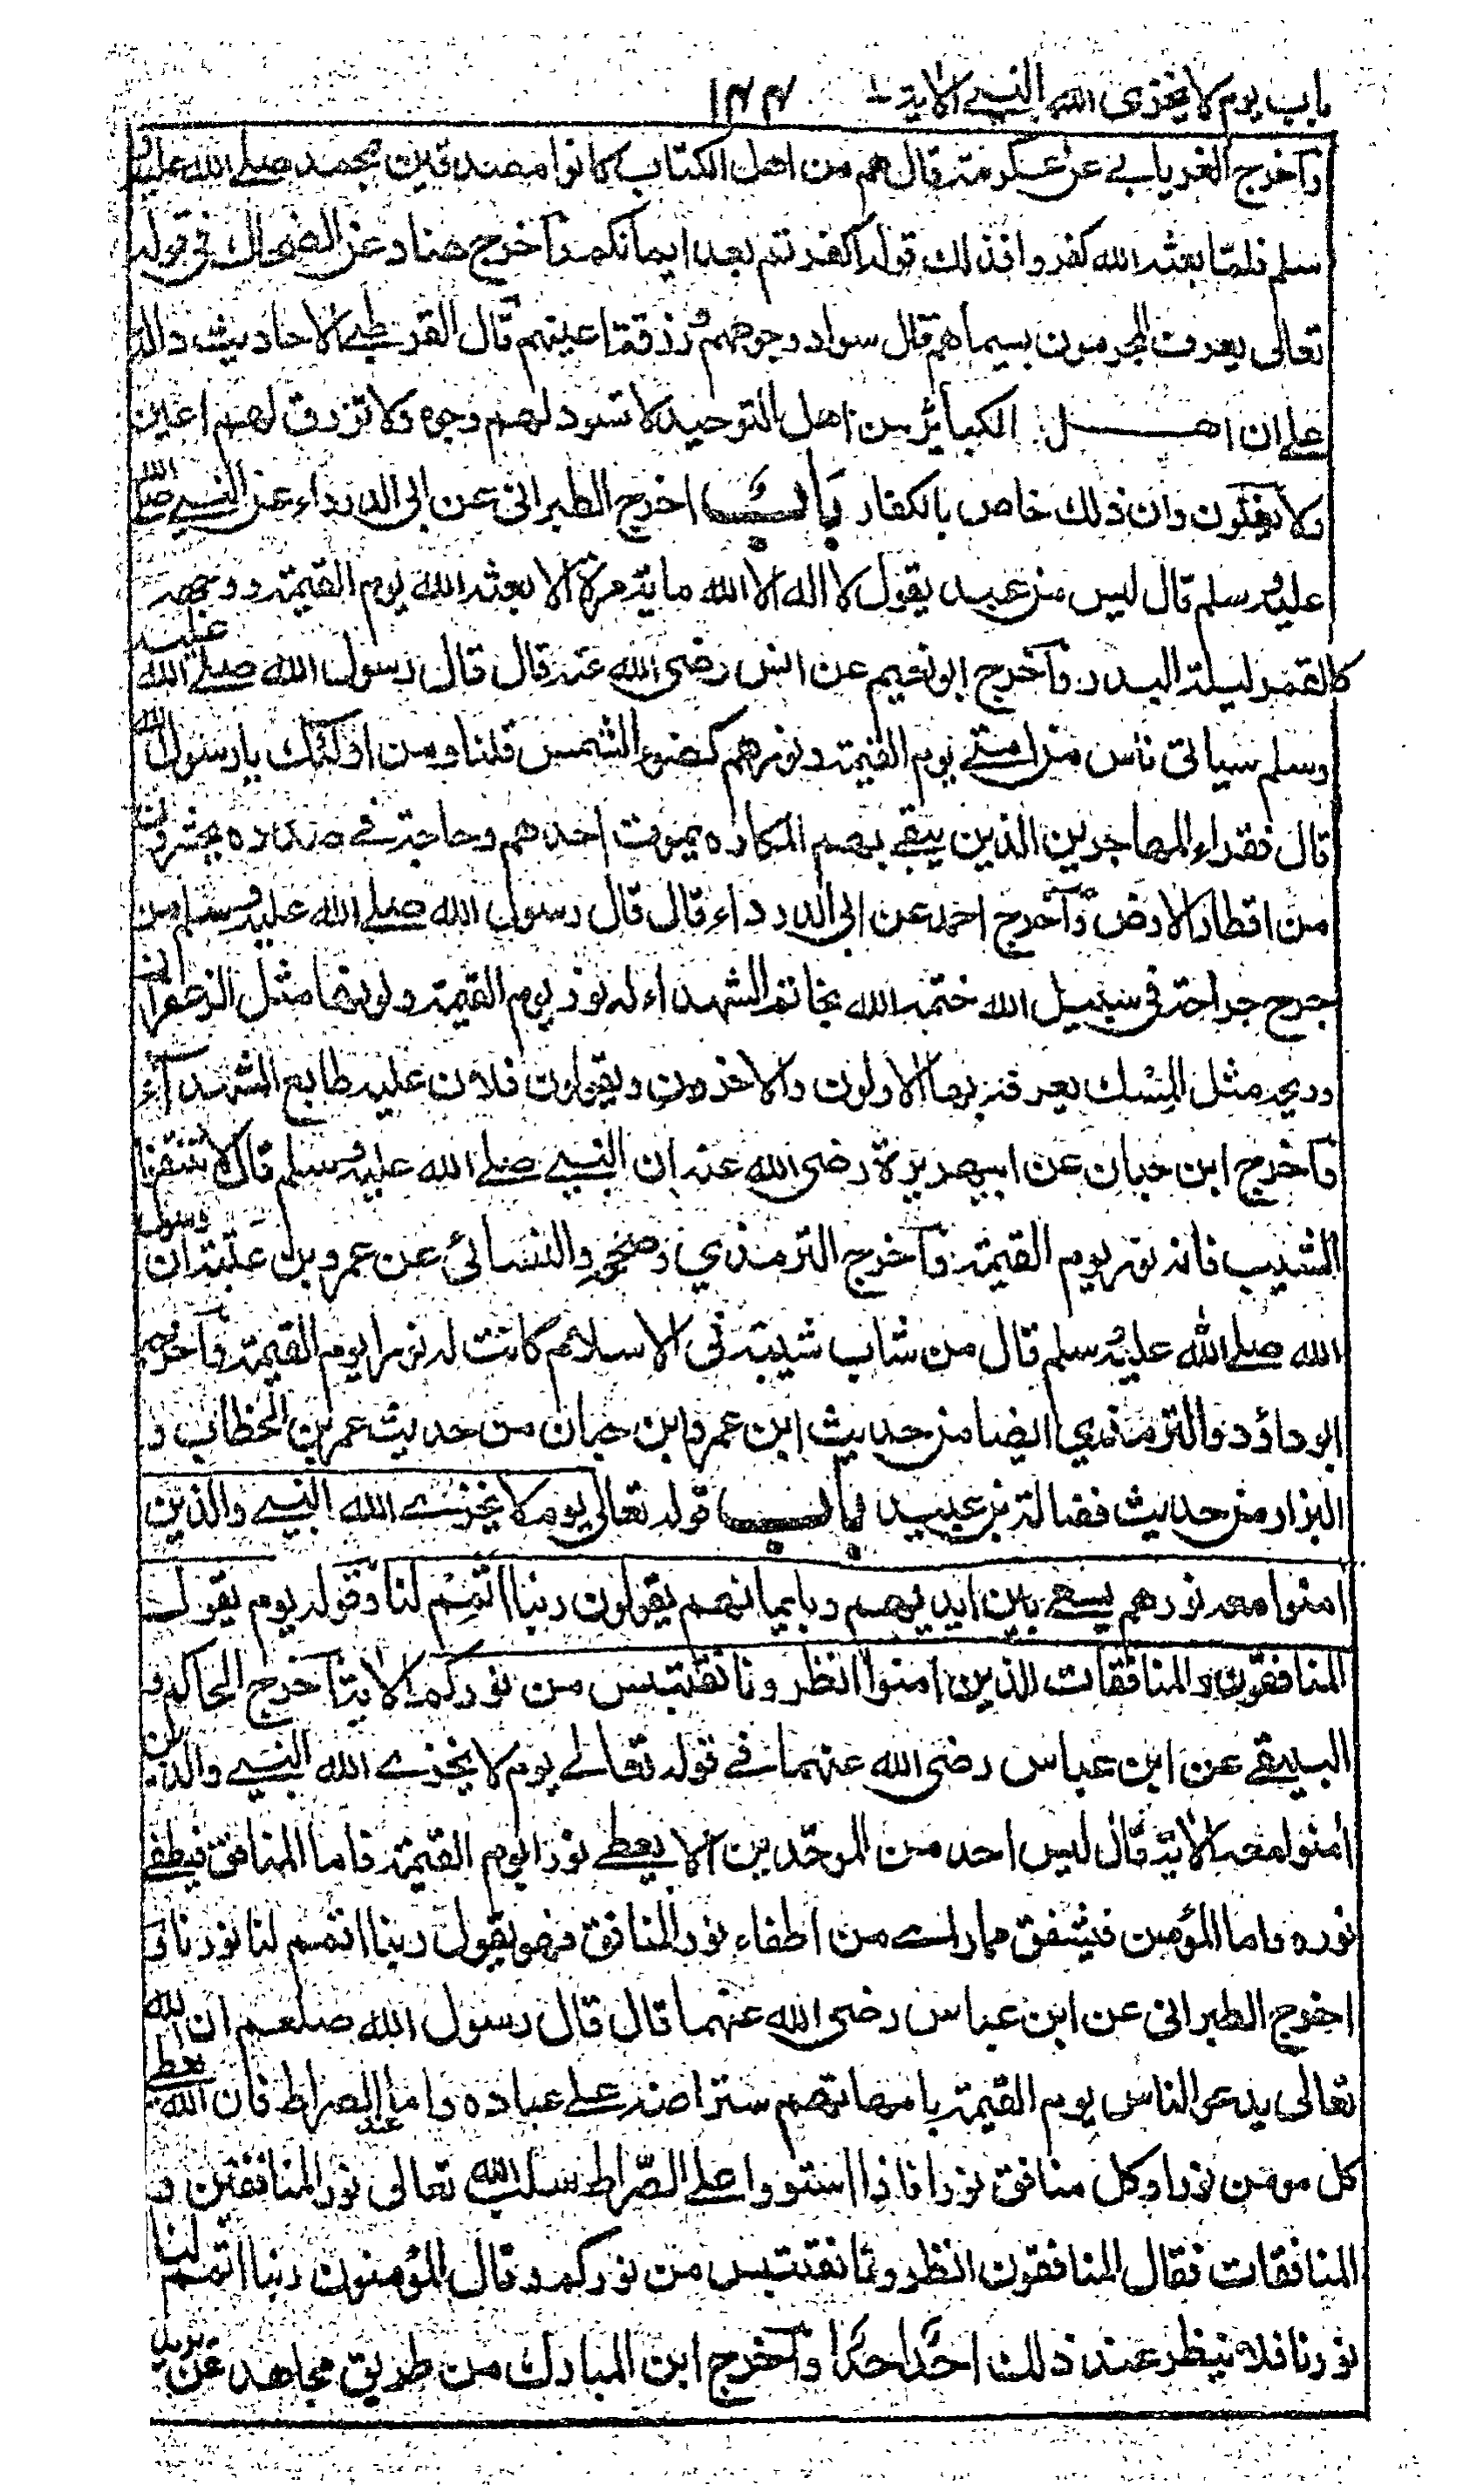 باب يوم لا يخزى الله النبي الاية ١٤٤
وآخرج الفريابي عن عكرمة قال هم من اهل الكتاب كانوا مصدقين بمحمد صلے الله عليه و
سلم فلما بعثه الله كفروا فذلك قوله اكفرتم بعد ايمانكم وآخرج هناد عن الضحاك في قوله
تعالى يعرف المجرمون بسيماهم قال سواد وجوههم وزرقة اعينهم قال القرطبي الاحاديث دالة
علے ان اهل الكبائر من اهل التوحيد لا تسود لهم وجوه ولا تزرق لهم اعين
ولا يغلون وان ذلك خاص بالكفار باب اخرج الطبرانى عن ابى الدرداء عن النبي صلے الله
عليه وسلم قال ليس من عبد يقول لا اله الا الله مائة مرة الا بعثه الله يوم القيمة ووجهه
كالقمر ليلة البدر وآخرج ابو نعيم عن انس رضى الله عنه قال قال رسول الله صلے الله عليه
وسلم سياتى ناس من امتے يوم القيمة ونورهم كضوء الشمس قلنا ومن اولئك يا رسول الله
قال فقراء المهاجرين الذين يتقے بهم المكاره يموت احدهم وحاجته فے صدره يحشرون
من اقطار الارض وآخرج احمد عن ابى الدرداء قال قال رسول الله صلے الله عليه وسلم من
جرح جراحة فى سبيل الله ختمه الله بخاتم الشهداء له نور يوم القيمة ولونها مثل الزعفران
وريحه مثل المسك يعرفه بها الاولون والاخرون ويقولون فلان عليه طابع الشهداء
وآخرج ابن حبان عن ابي هريرة رضى الله عنه ان النبي صلے الله عليه وسلم قال لا تنتفوا
الشيب فانه نور يوم القيمة وآخرج الترمذي وصححه والنسائى عن عمرو بن عتبة ان رسول
الله صلے الله عليه وسلم قال من شاب شيبة فى الاسلام كانت له نورا يوم القيمة وآخرجه
ابو داؤد والترمذي ايضا من حديث ابن عمر وابن حبان من حديث عمر بن الخطاب و
البزار من حديث فضالة بن عبيد باب قوله تعالى يوم لا يخزے الله النبي والذين
امنوا معه نورهم يسعے بين ايديهم وبايمانهم يقولون ربنا اتمم لنا وقوله يوم يقول
المنافقون والمنافقات للذين امنوا انظرونا نقتبس من نوركم الاية آخرج الحاكم و
البيهقے عن ابن عباس رضى الله عنهما فے قوله تعالے يوم لا يخزے الله النبي والذين
امنوا معه الاية قال ليس احد من الموحدين الا يعطے نورا يوم القيمة فاما المنافق فيطفے
نوره واما المؤمن فيشفق مما راے من اطفاء نور المنافق فهو يقول ربنا اتمم لنا نورنا و
اخرج الطبرانى عن ابن عباس رضى الله عنهما قال قال رسول الله صلعم ان الله
تعالى يدعو الناس يوم القيمة بامهاتهم سترا منه علے عباده واما عند الصراط فان الله يعطے
كل مومن نورا وكل منافق نورا فاذا استووا علے الصراط سلب الله تعالى نور المنافقين و
المنافقات فقال المنافقون انظرونا نقتبس من نوركم وقال المؤمنون ربنا اتمم لنا
نورنا فلا ينظر عند ذلك احد احدا وآخرج ابن المبارك من طريق مجاهد عن يزيد